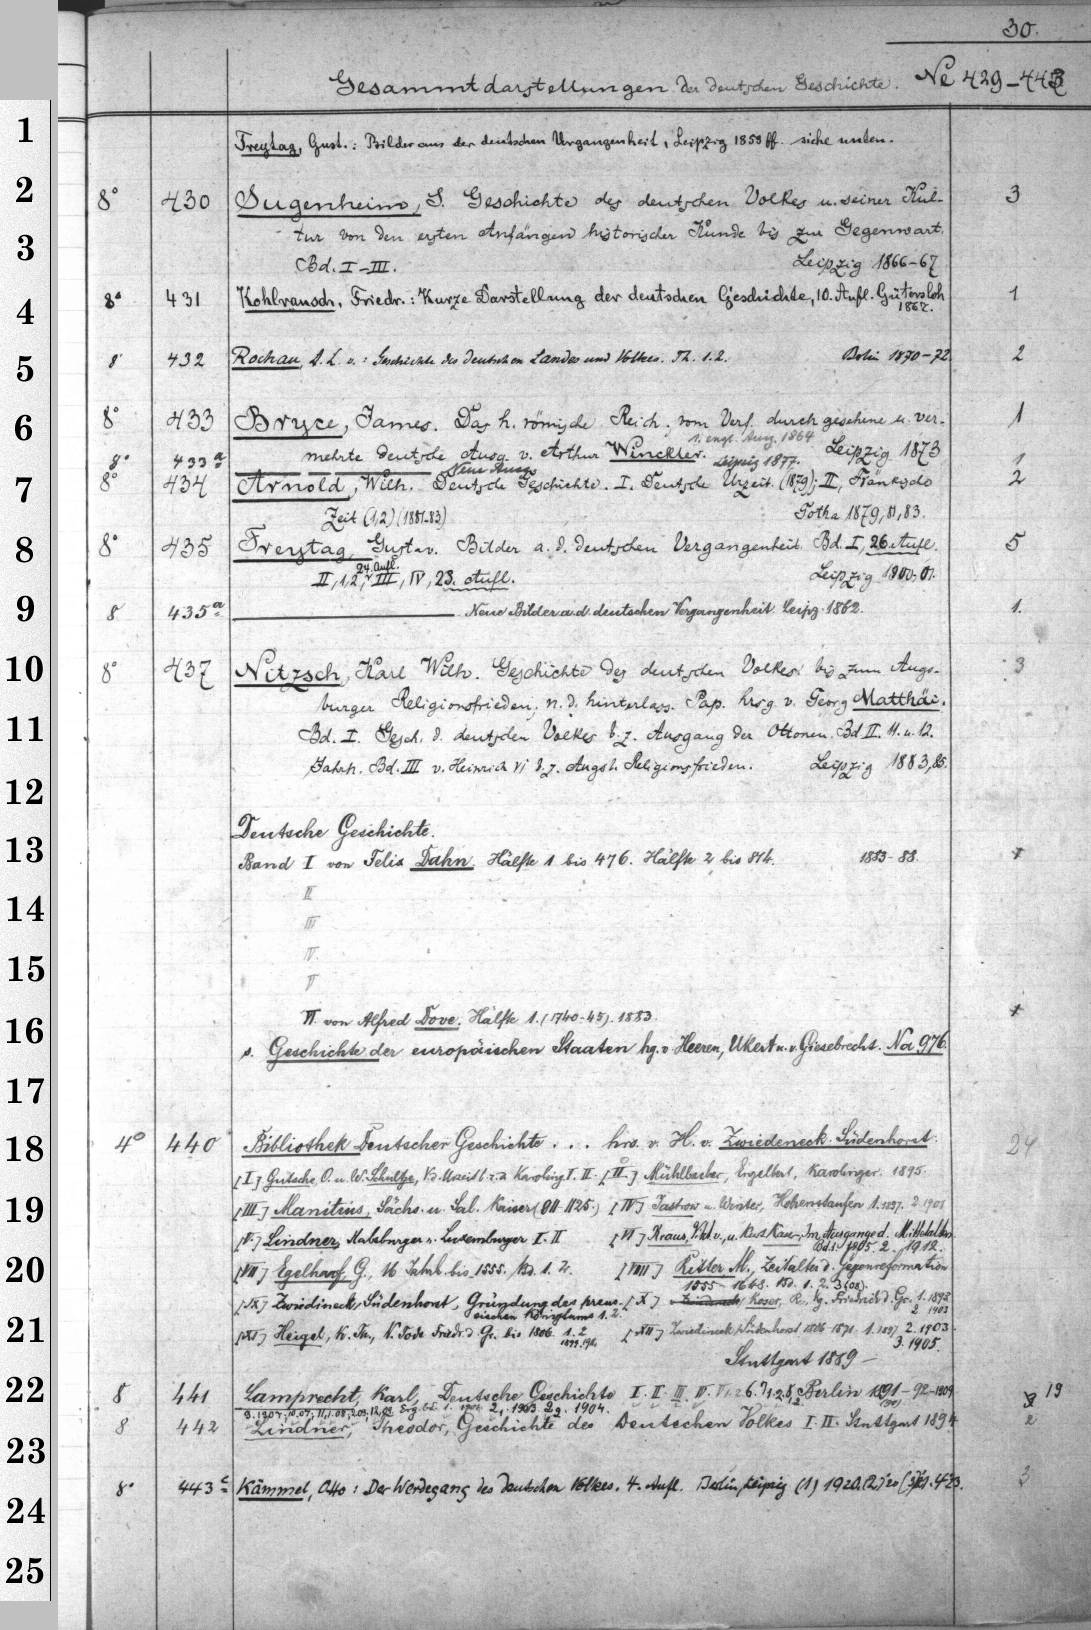 30.
Gesammtdarstellungen der deutschen Geschichte. Ne 429-443
1
Freytag, Gust.: Bilder aus der deutschen Vergangenheit, Leipzig 1859 ff. siehe unten.
2
8° 430 Sugenheim, S. Geschichte des deutschen Volkes u. seiner Kul- 3
tur von den ersten Anfängen historischer Kunde bis zur Gegenwart.
3
Bd. I-III. Leipzig 1866-67
8° 431 Kohlrausch, Friedr.: Kurze Darstellung der deutschen Geschichte, 10. Aufl. Gütersloh 1
1867.
4
8° 432 Rochau, A. L. v.: Geschichte des deutschen Landes und Volkes. Th. 1.2. Berlin 1870-72. 2
5
8° 433 Bryce, James. Das h. römische Reich, vom Verf. durchgesehene u. ver- 1
6
1. engl. Ausg. 1864
mehrte deutsche Ausg. v. Arthur Winckler. Leipzig 1873
8° 433a Neue Ausg. Leipzig 1877. 1
8° 434 Arnold, Wilh. Deutsche Geschichte. I. Deutsche Urzeit. (1879); II, Fränkische 2
7
Zeit (1,2) (1881-83) Gotha 1879, 81, 83.
8° 435 Freytag, Gustav. Bilder a. d. deutschen Vergangenheit. Bd. I, 26. Aufl. 5
8
24. Aufl.
II, 1,2, III, IV, 23. Aufl. Leipzig 1900-01.
9
8 435a Neue Bilder a. d. deutschen Vergangenheit Leipz. 1862. 1.
10
8° 437 Nitzsch, Karl Wilh. Geschichte des deutschen Volkes bis zum Augs- 3
burger Religionsfrieden, n. d. hinterlass. Pap. hrsg. v. Georg Matthäi.
11
Bd. I. Gesch. d. deutschen Volkes b. z. Ausgang der Ottonen. Bd II. 11. u. 12.
Jahrh. Bd. III v. Heinrich VI b. z. Augsb. Religionsfrieden. Leipzig 1883, 85.
12
Deutsche Geschichte.
13
Band I von Felix Dahn. Hälfte 1 bis 476. Hälfte 2 bis 814. 1883-88.
II
14
III
IV.
15
V
VI. von Alfred Dove. Hälfte 1. (1740-45). 1883.
16
s. Geschichte der europäischen Staaten hg. v. Heeren, Ukert u. v. Giesebrecht. Na 976.
17
18
4° 440 Bibliothek Deutscher Geschichte . . . hrs. v. H. v. Zwiedeneck-Südenhorst. 24
[I] Gutsche, O. u. W. Schultze, I. II. [II] Mühlbacher, Engelbert, Karolinger. 1895.
19
[III] Manitius, Sächs. u. Sal. Kaiser (911-1125.) [IV] Jastrow u. Winter, Hohenstaufen 1. 1897. 2. 1901
[V] Lindner, Habsburger u. Luxemburger I. II [VI] Kraus, V. v., u. Kurt Kaser, Im Ausgange d. Mittelalters
Bd. 1. 1905. 2. 1912.
20
[VII] Egelhaaf, G., 16 Jahrh. bis 1555. Bd. 1. 2. [VIII] Ritter M., Zeitalter d. Gegenreformation
1555-1648. Bd. 1. 2. 3 (08).
[IX] Zwiedineck, Südenhorst, Gründung des preus- [X] Koser, R., Kg. Friedrich d. Gr. 1. 1893
sischen Königtums 1. 2. 2 1903
21
[XI] Heigel, K. Th., V. Tode Friedr. d. Gr. bis 1806. 1. 2 [XII] Zwiedineck, Südenhorst 1806-1871. 1. 1897. 2. 1903.
3. 1905.
Stuttgart 1889 -
22
8 441 Lamprecht, Karl, Deutsche Geschichte I. II. III. IV. V 1.2 6. 7 1.2. 8, Berlin 1891-92-1909 19
2, 1903 2, 1904.
8 442 Lindner, Theodor, Geschichte des Deutschen Volkes I. II. Stuttgart 1894 2
23
8° 443c Kämmel, Otto: Der Werdegang des deutschen Volkes. 4. Aufl. Berlin, Leipzig (1) 1920. (2) 20 3
24
25